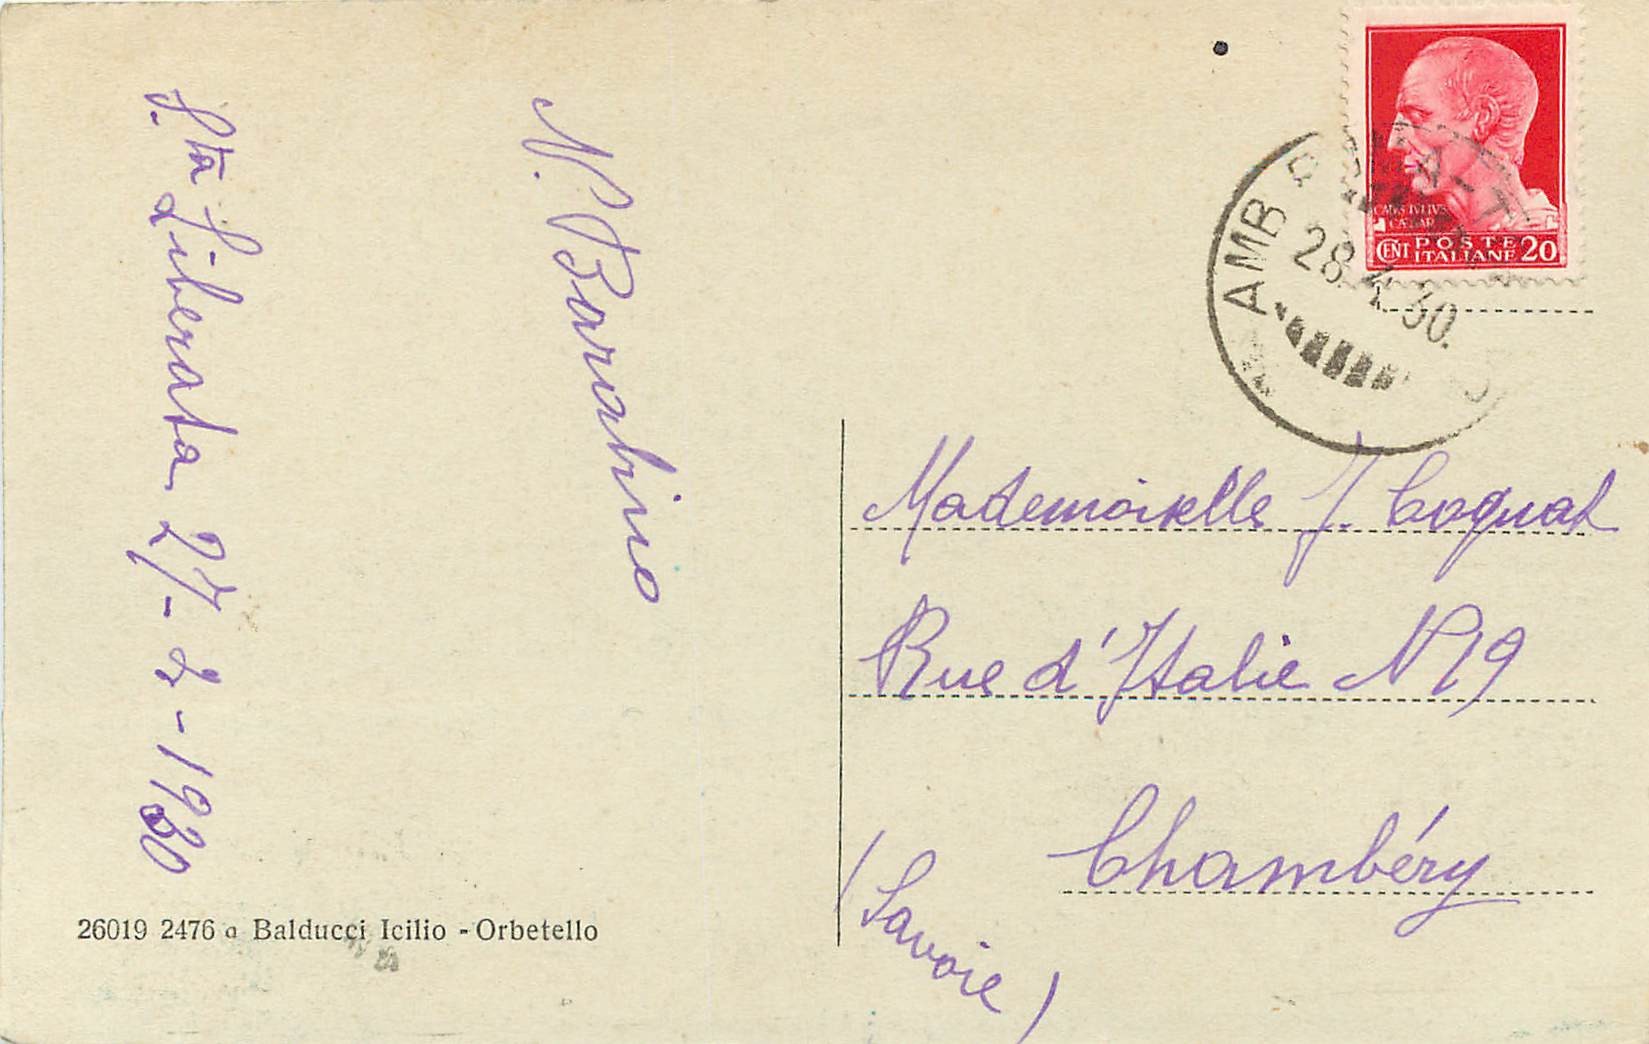 S.ta Liberata 27-2-1930
N. Barabino
26019 2476 a Balducci Icilio - Orbetello
CAIVS IVLIVS
CAESAR
CENT POSTE ITALIANE 20
AMB
28.4.30.
Mademoiselle J. Cognat
Rue d'Italie N 19
Chambéry
(Savoie)